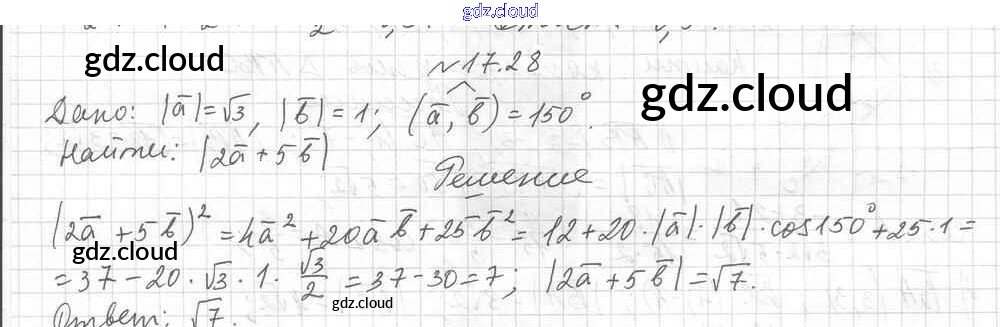 gdz.cloud
gdz.cloud
gdz.cloud
№17.28
Дано: |a̅|=√3, |b̅|=1; (a̅, b̅)=150°.
Найти: |2a̅+5b̅|
Решение
(2a̅+5b̅)²=4a̅²+20a̅b̅+25b̅²=12+20·|a̅|·|b̅|·cos150°+25·1=
gdz.cloud
=37-20·√3·1·√3/2=37-30=7; |2a̅+5b̅|=√7.
gdz.cloud
Ответ: √7.